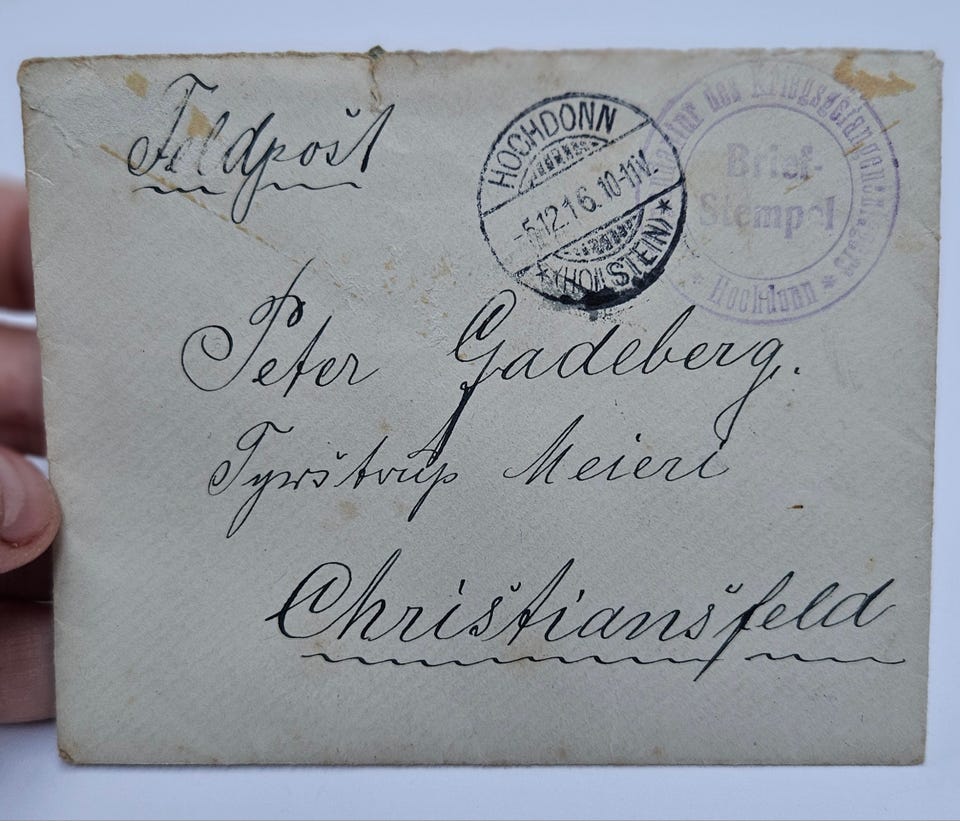 Feldpost
HOCHDONN
-5.12.16.10-11V.
* (HOLSTEIN) *
des Kriegsgefangenenlagers
Brief-
Stempel
* Hochdonn *
Peter Gadeberg.
Tyrstrup Meieri
Christiansfeld